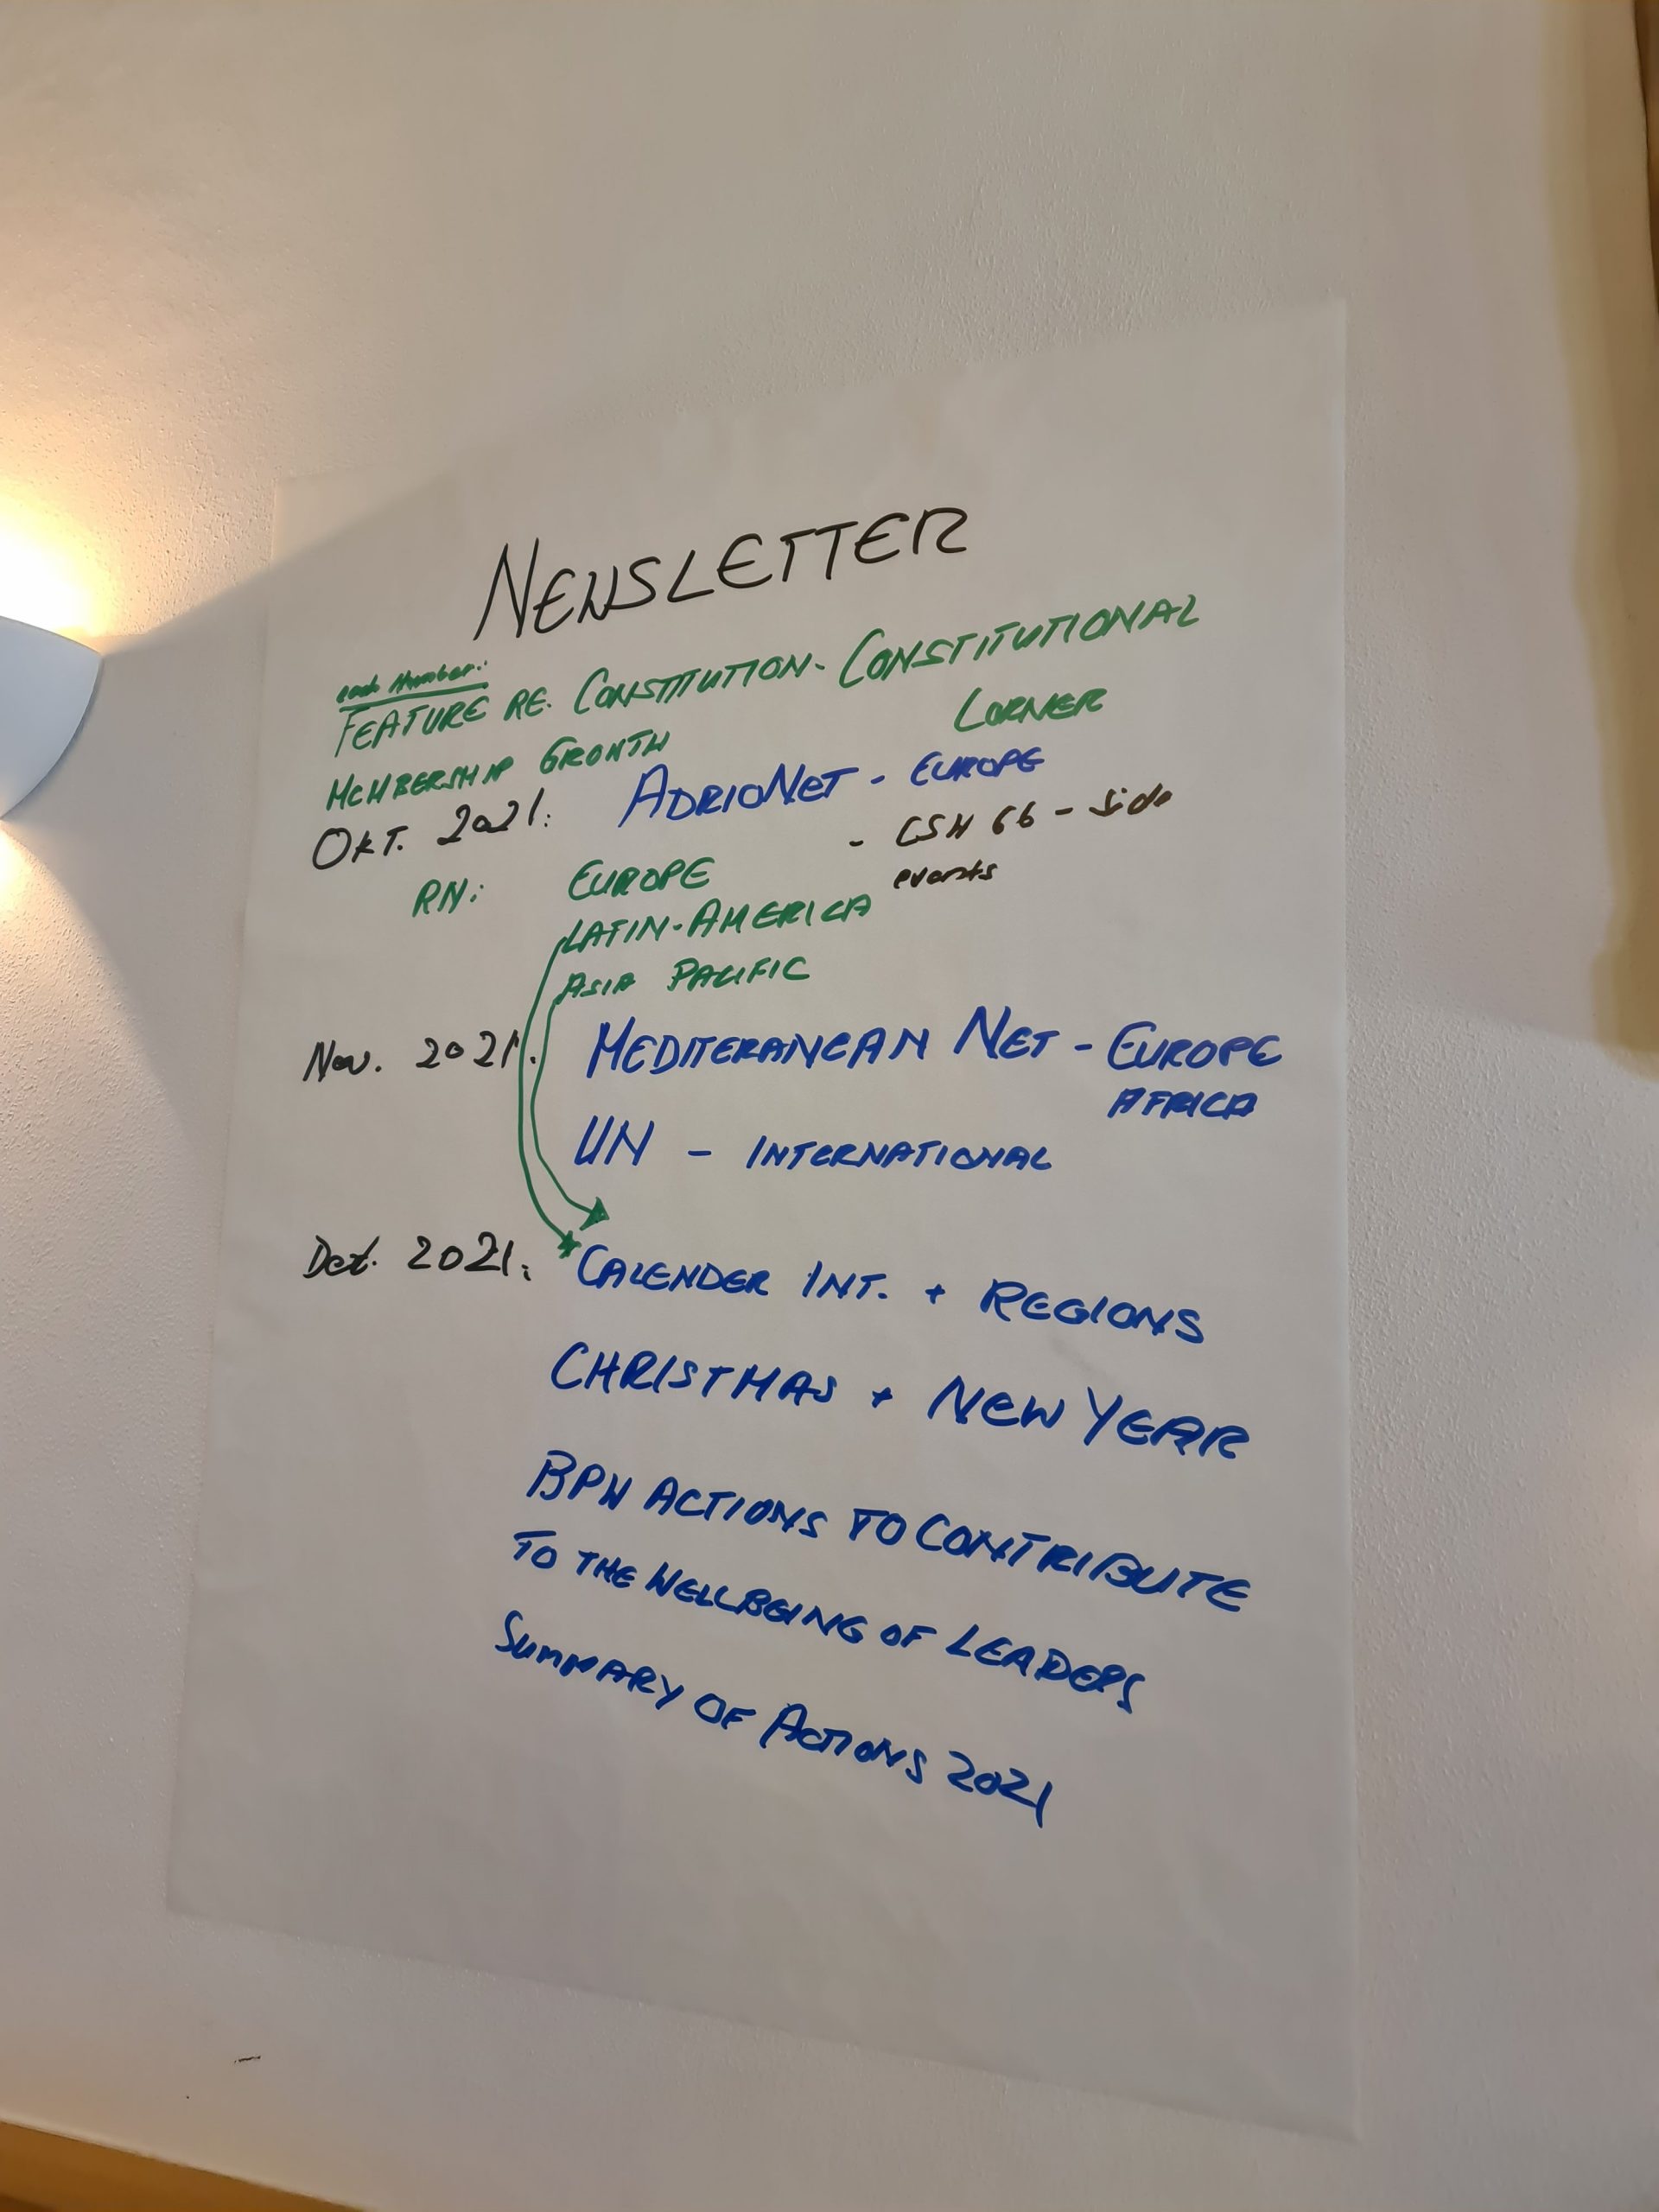 NEWSLETTER
each Number:
FEATURE RE. CONSTITUTION - CONSTITUTIONAL
CORNER
MEMBERSHIP GROWTH
OKT. 2021: ADRIONET - EUROPE
- CSW 66 - side
events
RN: EUROPE
LATIN-AMERICA
ASIA PACIFIC
Nov. 2021: MEDITERANEAN NET - EUROPE
AFRICA
UN - INTERNATIONAL
2021: CALENDER INT. + REGIONS
CHRISTMAS + NEW YEAR
BPW ACTIONS TO CONTRIBUTE
TO THE WELLBEING OF LEADERS
SUMMARY OF ACTIONS 2021